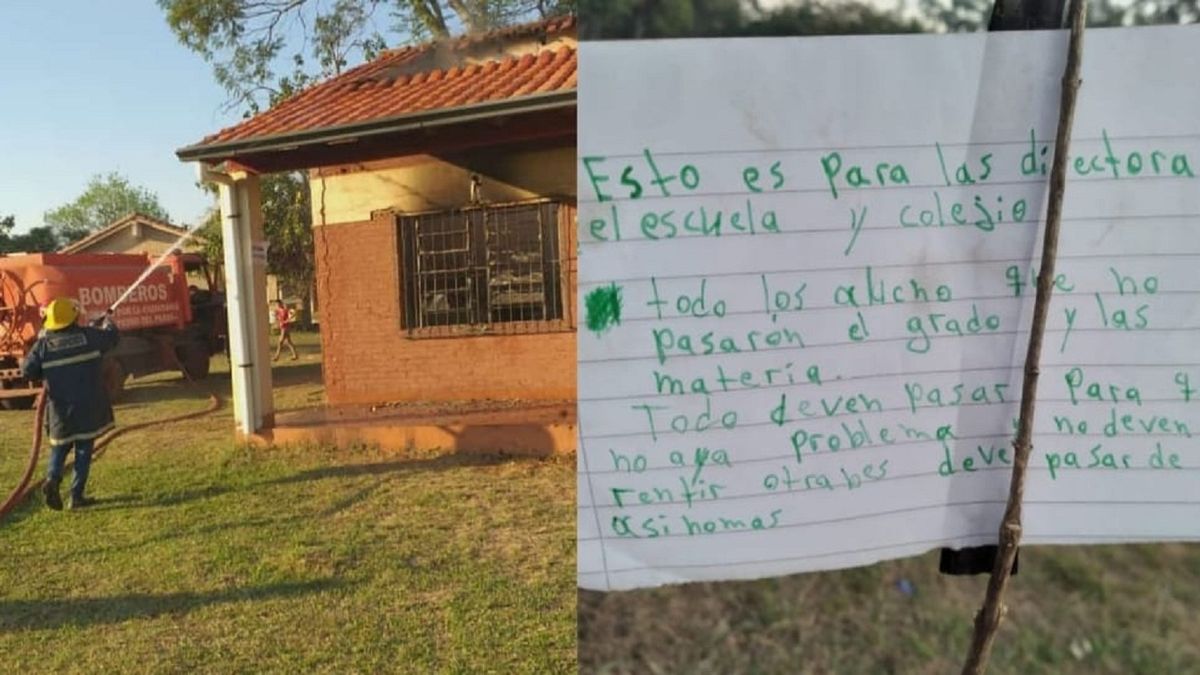 BOMBEROS
Esto es para las directora
el escuela y colegio
todo los alucho que no
pasarón el grado y las
materia.
Todo deven pasar para q
no aya problema y no deven
rentir otrabes deven pasar de
asi nomas